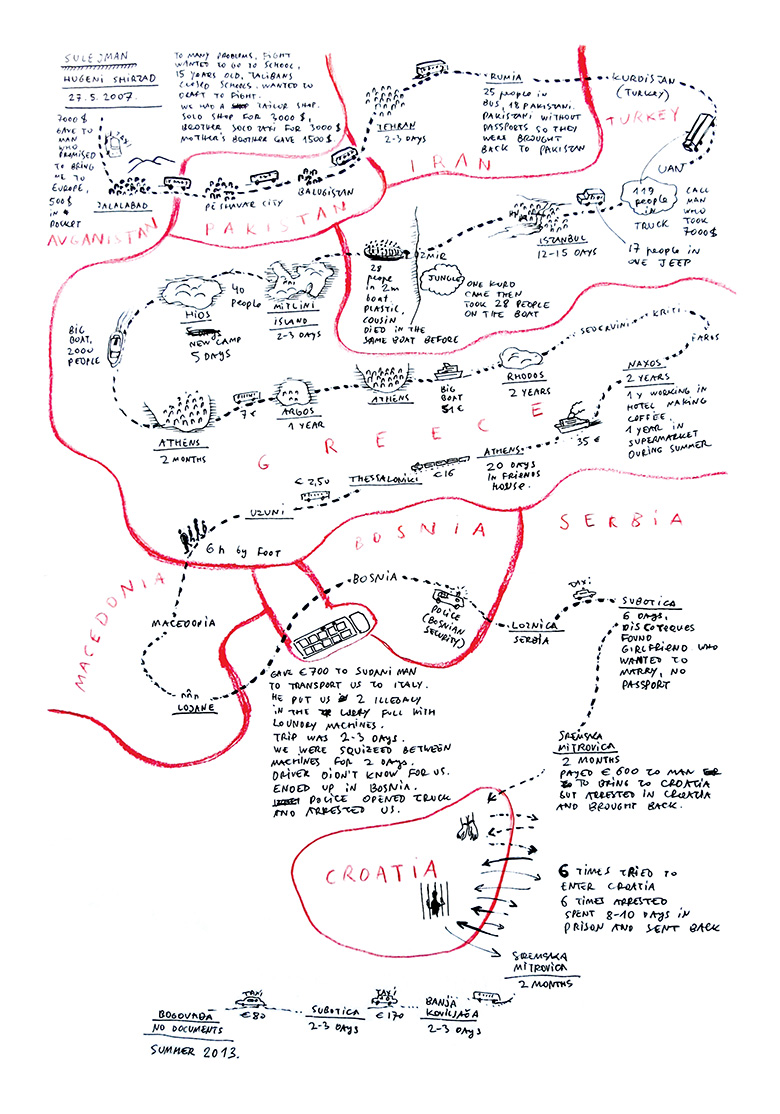 SULEJMAN
HUGENI SHIRZAD
27.5.2007.
TO MANY PROBLEMS, FIGHT
WANTED TO GO TO SCHOOL,
15 YEARS OLD, TALIBANS
CLOSED SCHOOLS. WANTED TO
DRAFT TO FIGHT.
WE HAD A TAILOR SHOP.
SOLD SHOP FOR 3000 $,
BROTHER SOLD TAXI FOR 3000 $
MOTHER'S BROTHER GAVE 1500 $.
7000 $
GAVE TO
MAN
WHO
PROMISED
TO BRING
ME TO
EUROPE,
500 $
IN
POCKET
JALALABAD
PESHAVAR CITY
BALUGISTAN
AVGANISTAN
PAKISTAN
TEHRAN
2-3 DAYS
IRAN
RUMIA
25 people in
BUS, 18 PAKISTANI.
PAKISTANI WITHOUT
PASSPORTS SO THEY
WERE BROUGHT
BACK TO PAKISTAN
KURDISTAN
(TURKEY)
TURKEY
UAN
119
people
in
TRUCK
CALL
MAN
WHO
TOOK
7000 $
17 people in
ONE JEEP
ISTANBUL
12-15 DAYS
IZMIR
JUNGLE
ONE KURD
CAME THEN
TOOK 28 PEOPLE
ON THE BOAT
28
peope
in 2m
boat,
PLASTIC,
COUSIN
DIED IN THE
SAME BOAT BEFORE
MITLINI
ISLAND
2-3 DAYS
40
PEOPLE
HIOS
NEW CAMP
5 DAYS
BIG
BOAT,
2000
PEOPLE
ATHENS
2 MONTHS
7 €
ARGOS
1 YEAR
ATHENS
BIG
BOAT
51 €
RHODOS
2 YEARS
SEDERVINI
KRITI
PAROS
NAXOS
2 YEARS
1 Y WORKING IN
HOTEL MAKING
COFFEE.
1 YEAR IN
SUPERMARKET
DURING SUMMER
GREECE
35 €
ATHENS
20 DAYS
IN FRIENDS
HOUSE.
€ 16
THESSALONIKI
€ 2,50
UZUNI
6 h by FOOT
BOSNIA
SERBIA
MACEDONIA
MACEDONIA
LOJANE
BOSNIA
POLICE
(BOSNIAN
SECURITY)
LOZNICA
SERBIA
TAXI
SUBOTICA
6 DAYS,
DISCOTEQUES
FOUND
GIRLFRIEND WHO
WANTED TO
MARRY, NO
PASSPORT
GAVE € 700 TO SUDANI MAN
TO TRANSPORT US TO ITALY.
HE PUT US 2 ILLEGALY
IN THE LORRY FULL WITH
LOUNDRY MACHINES.
TRIP WAS 2-3 DAYS.
WE WERE SQUIZEED BETWEEN
MACHINES FOR 2 DAYS.
DRIVER DIDN'T KNOW FOR US.
ENDED UP IN BOSNIA.
POLICE OPENED TRUCK
AND ARRESTED US.
SREMSKA
MITROVICA
2 MONTHS
PAYED € 600 TO MAN
TO BRING TO CROATIA
BUT ARRESTED IN CROATIA
AND BROUGHT BACK.
CROATIA
6 TIMES TRIED TO
ENTER CROATIA
6 TIMES ARRESTED
SPENT 8-10 DAYS IN
PRISON AND SENT BACK
SREMSKA
MITROVICA
2 MONTHS
BANJA
KOVILJAČA
2-3 DAYS
TAXI
€ 170
SUBOTICA
2-3 DAYS
TAXI
€ 80
BOGOVAĐA
NO DOCUMENTS
SUMMER 2013.